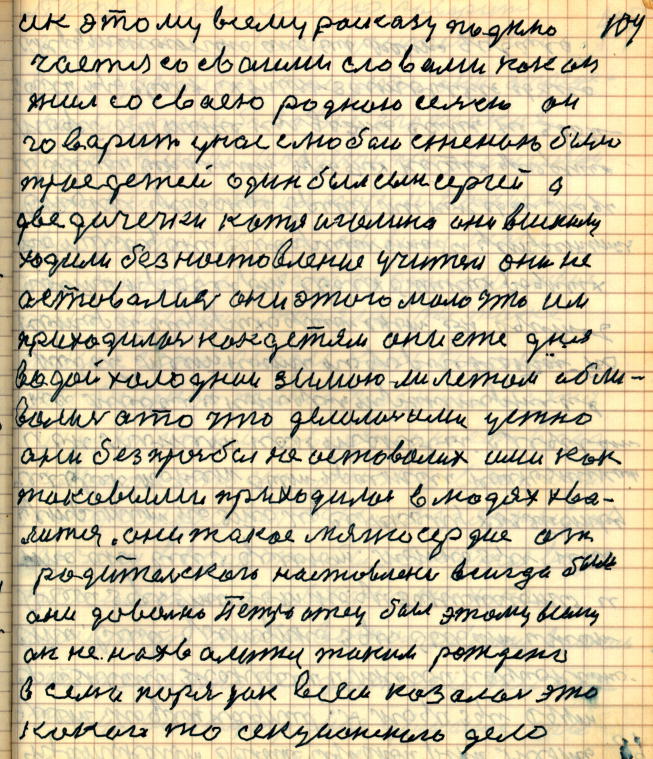 ик этому всему расказу подклю 104
чается со своими словами как он
жил со сваею родною семею он
говарит унас слюбой сженою было
трое детей один был сын сергей а
две дичечки катя игалина они вшколу
ходили без наставление учителя они не
аставались они этого мало что им
приходилос как детям ониеже дня
вадой холодной зимою-ли летом абли-
вались ато что делалос ими устно
они без прозбы не оставались ими как
таковыми приходилос в людях хва-
лится. они такое мяхкосердие от
родительского наставлени всигда были
они доволно Петро отец был этому всему
он не нахвалится таким рождено
в семи порядок всем казалос это
какое то секционного дело